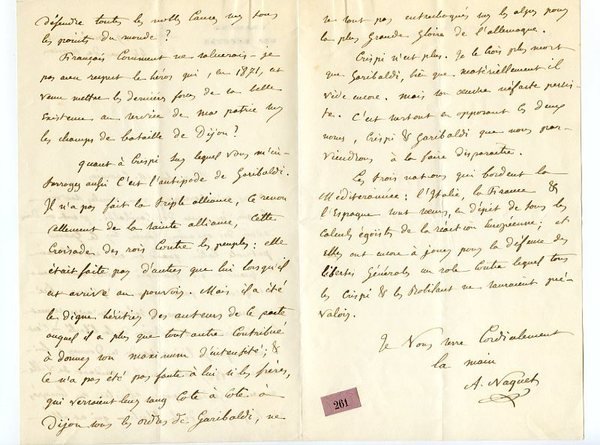 défendre toutes les nobles causes, sur tous
les points du monde ?
Français comment ne saluerais-je
pas avec respect le héros qui, en 1871, est
venu mettre les dernières forces de sa belle
existence au service de ma patrie sur
les champs de bataille de Dijon ?
quant à Crispi sur lequel vous m'in-
terrogez aussi c'est l'antipode de Garibaldi.
Il n'a pas fait la triple alliance, ce renou
vellement de la sainte alliance, cette
Croisade des rois contre les peuples : elle
était faite par d'autres que lui lorsqu'il
est arrivé au pouvoir. Mais il a été
le digne héritier des auteurs de le pacte
auquel il a plus que tout autre contribué
à donner son maximum d'intensité ; &
ce n'a pas été pas faute à lui si les frères,
qui versaient leur sang côte à côte à
Dijon sous les ordres de Garibaldi, ne
ne sont pas entrechoqués sur les alpes pour
la plus grande gloire de l'allemagne.
Crispi n'est plus. Je le crois plus mort
que Garibaldi, bien que matériellement il
vive encore. mais son œuvre néfaste persis-
te. C'est surtout en opposant les deux
noms, Crispi & Garibaldi que nous par-
viendrons à la faire disparaître.
Les trois nations qui bordent la
Méditerranée ; l'Italie, la France &
l'Espagne sont sœurs, en dépit de tous les
calculs égoïstes de la réaction européenne ; et
elles ont encore à jouer pour la défense des
libertés générales un rôle contre lequel tous
les Crispi & les Robilant ne sauraient pré-
valoir.
Je vous serre cordialement
la main
A. Naquet
261